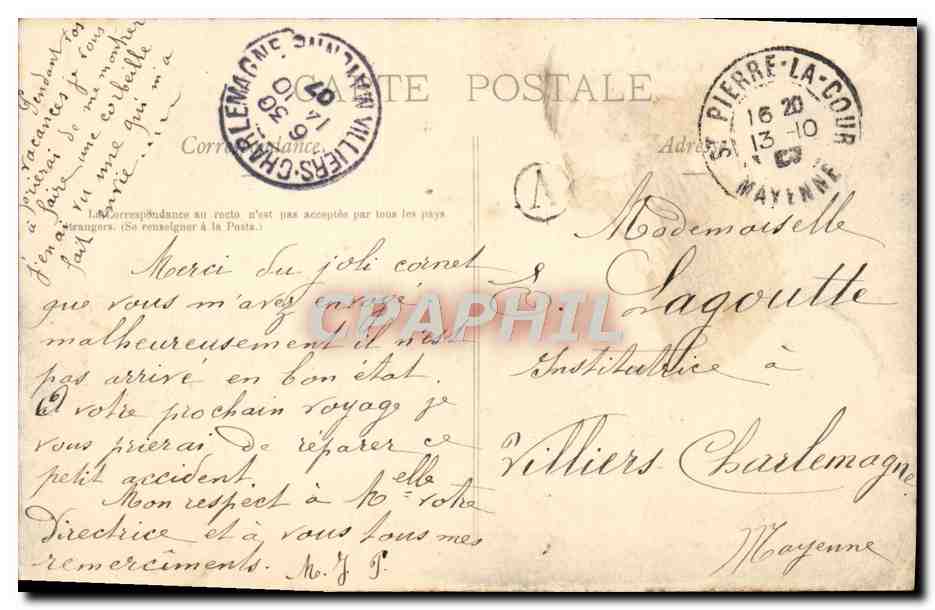 CARTE POSTALE
Correspondance
Adresse
La Correspondance au recto n'est pas acceptée par tous les pays
étrangers. (Se renseigner à la Poste.)
ST PIERRE-LA-COUR
16 20
13 -10
07
MAYENNE
VILLIERS-CHARLEMAGNE
6 30
14 10
07
V
Merci du joli cornet
que vous m'avez envoyé
malheureusement il n'est
pas arrivé en bon état.
A votre prochain voyage je
vous prierai de réparer ce
petit accident.
Mon respect à Melle votre
Directrice et à vous tous mes
remerciments. M. J. P.
Pendant vos
vacances je vous
prierai de me montrer
à faire une corbeille
j'en ai vu une qui m'a
fait envie
Mademoiselle
E. Lagoutte
Institutrice à
Villiers-Charlemagne
Mayenne
CPAPHIL